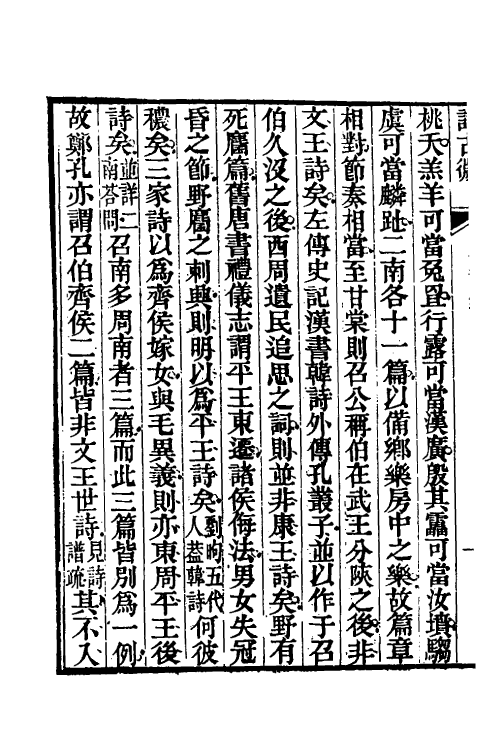 詩古微
桃夭羔羊可當兔罝行露可當漢廣殷其靁可當汝墳騶
虞可當麟趾二南各十一篇以備鄉樂房中之樂故篇章
相對節奏相當至甘棠則召公稱伯在武王分陝之後非
文王詩矣左傳史記漢書韓詩外傳孔叢子並以作于召
伯久沒之後西周遺民追思之詞則並非康王詩矣野有
死麕篇舊唐書禮儀志謂平王東遷諸侯侮法男女失冠
昏之節野麕之刺興則明以爲平王詩矣劉昫五代人蓋韓詩何彼
穠矣三家詩以爲齊侯嫁女與毛異義則亦東周平王後
詩矣並詳二南答問召南多周南者三篇而此三篇皆別爲一例
故鄭孔亦謂召伯齊侯二篇皆非文王世詩見詩譜疏其不入